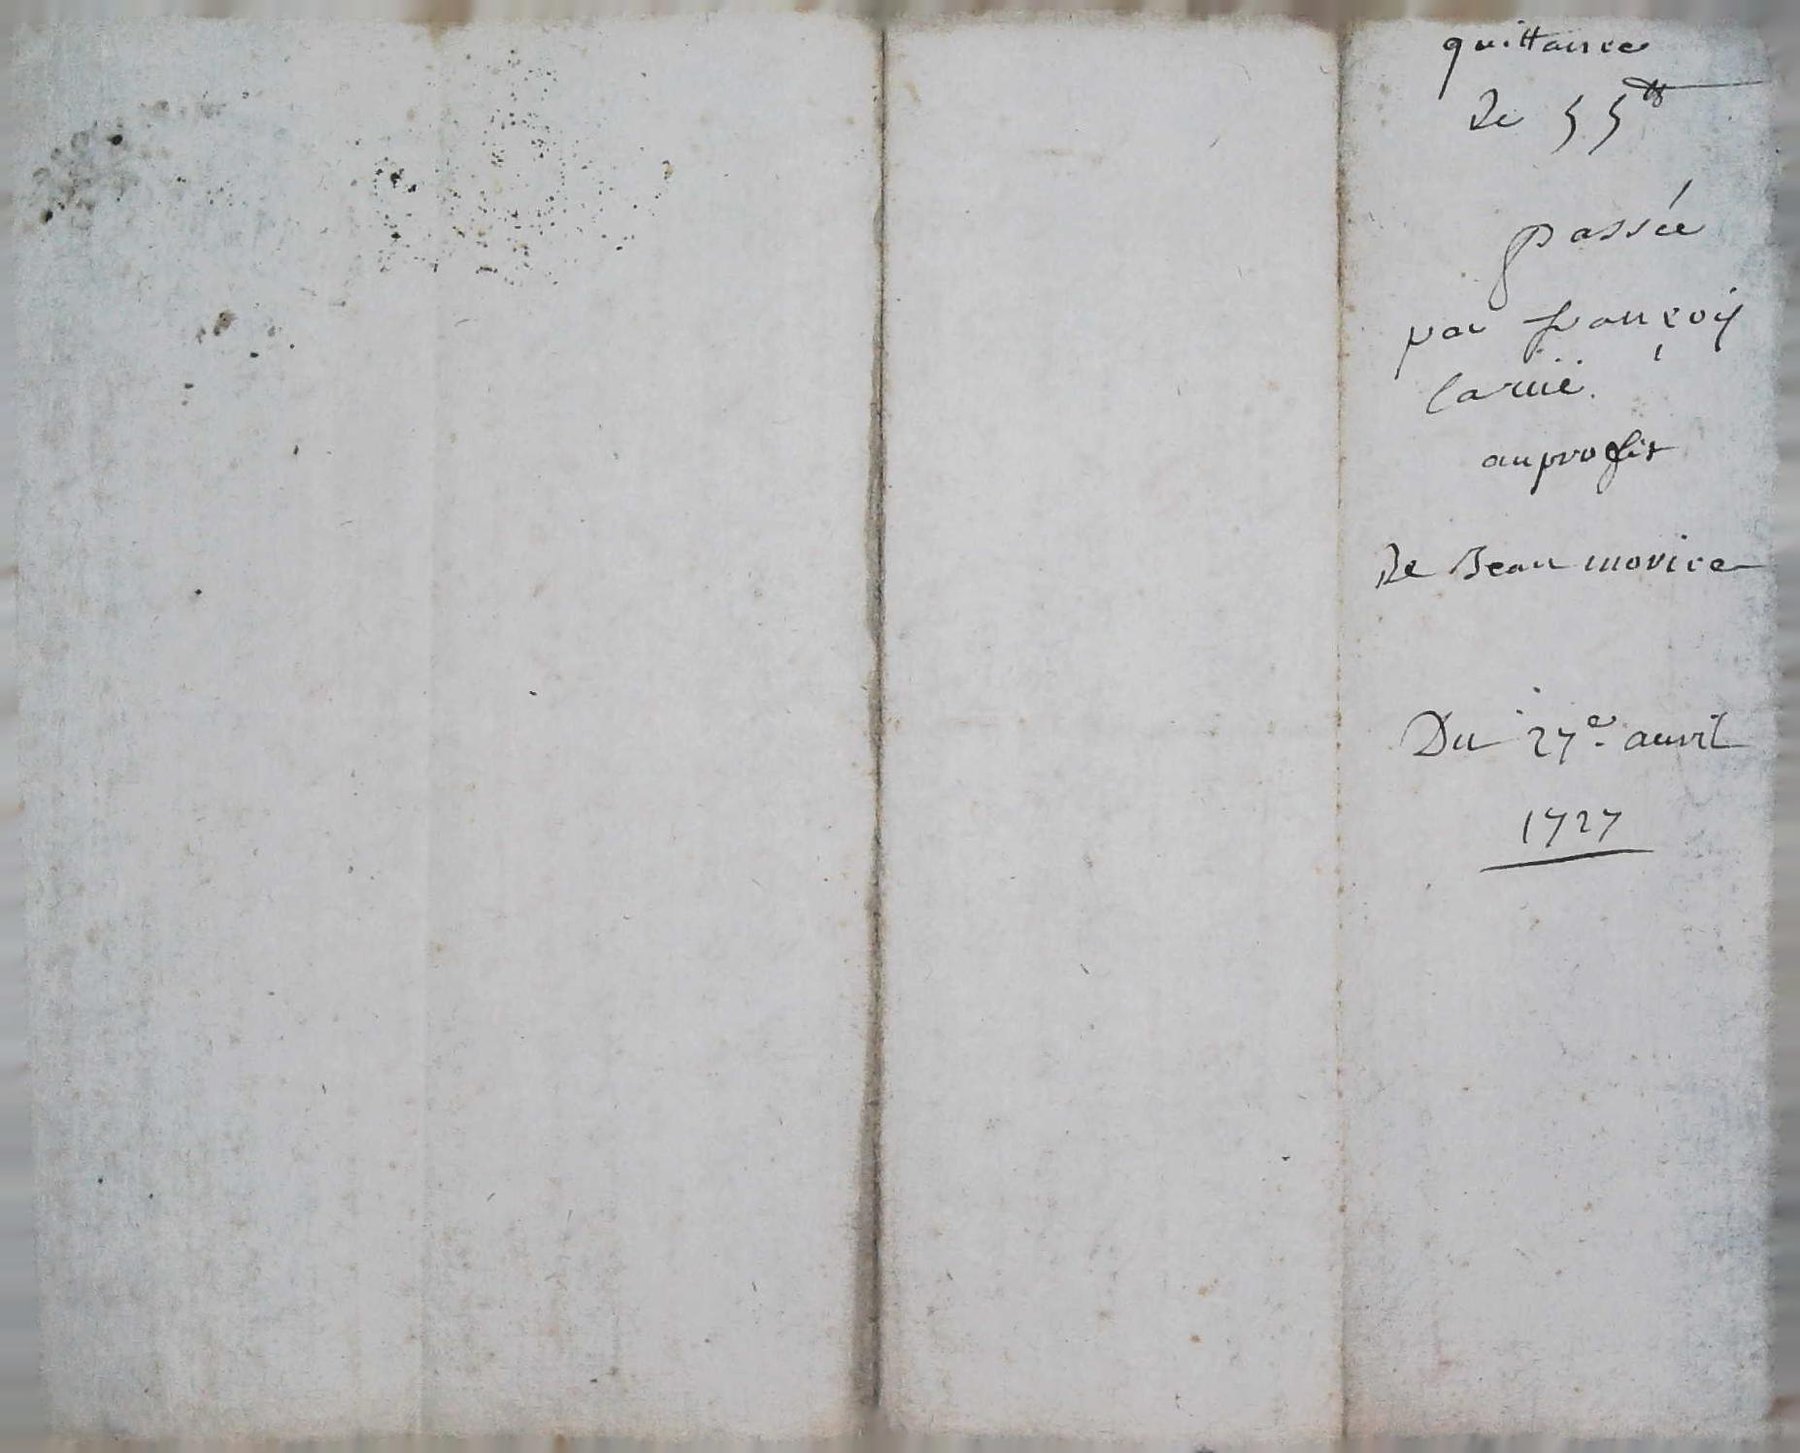 quittance
De 55 ₶
passée
par françois
Laruë.
au profit
De Jean morice
Du 27e. auvril
1727